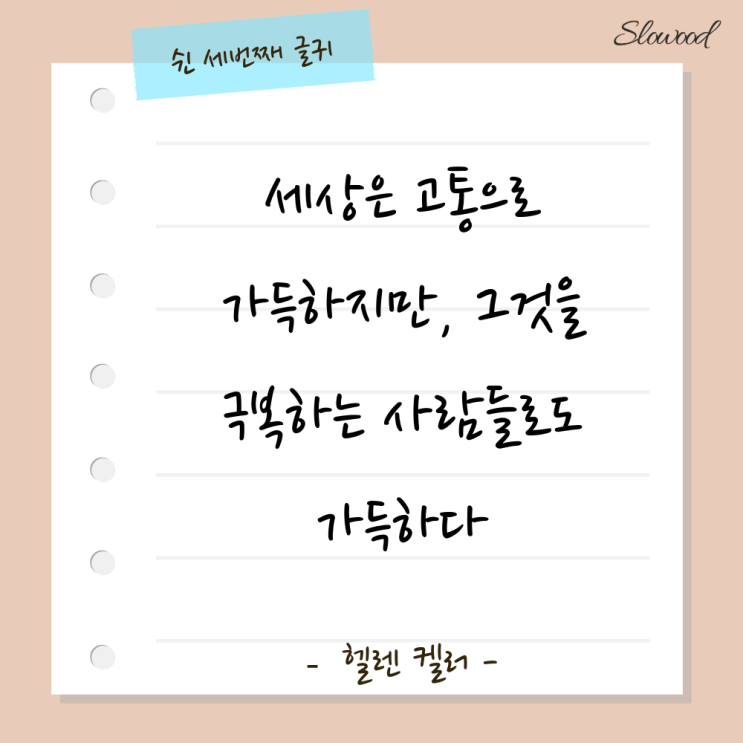 쉰 세번째 글귀
Slowood
세상은 고통으로
가득하지만, 그것을
극복하는 사람들로도
가득하다
- 헬렌 켈러 -